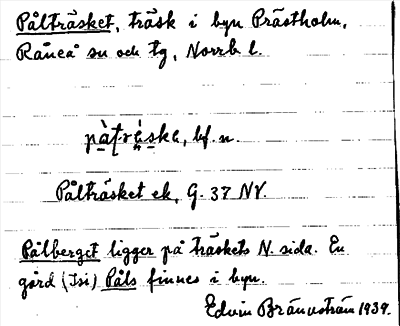 Pålträsket, träsk i byn Prästholm,
Råneå sn och tg, Norrb l.
bf. n.
Pålträsket ek, G. 37 NV
Pålberget ligger på träskets N. sida. En
gård (Isi) Påls finnes i byn.
Edvin Brännström 1939.